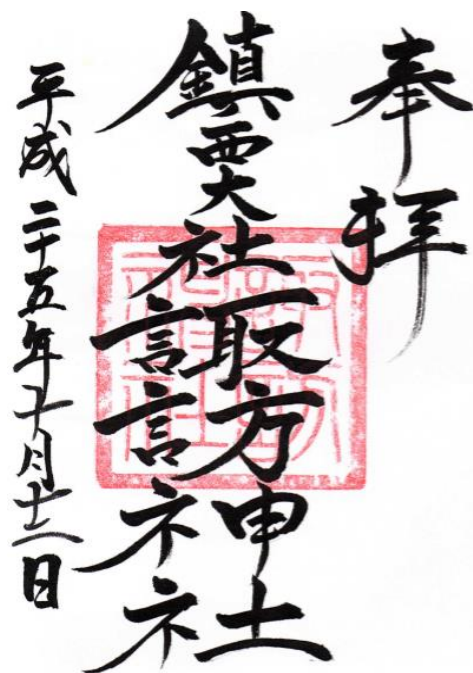 奉拝
鎮西大社諏訪神社
平成二十五年十月十二日